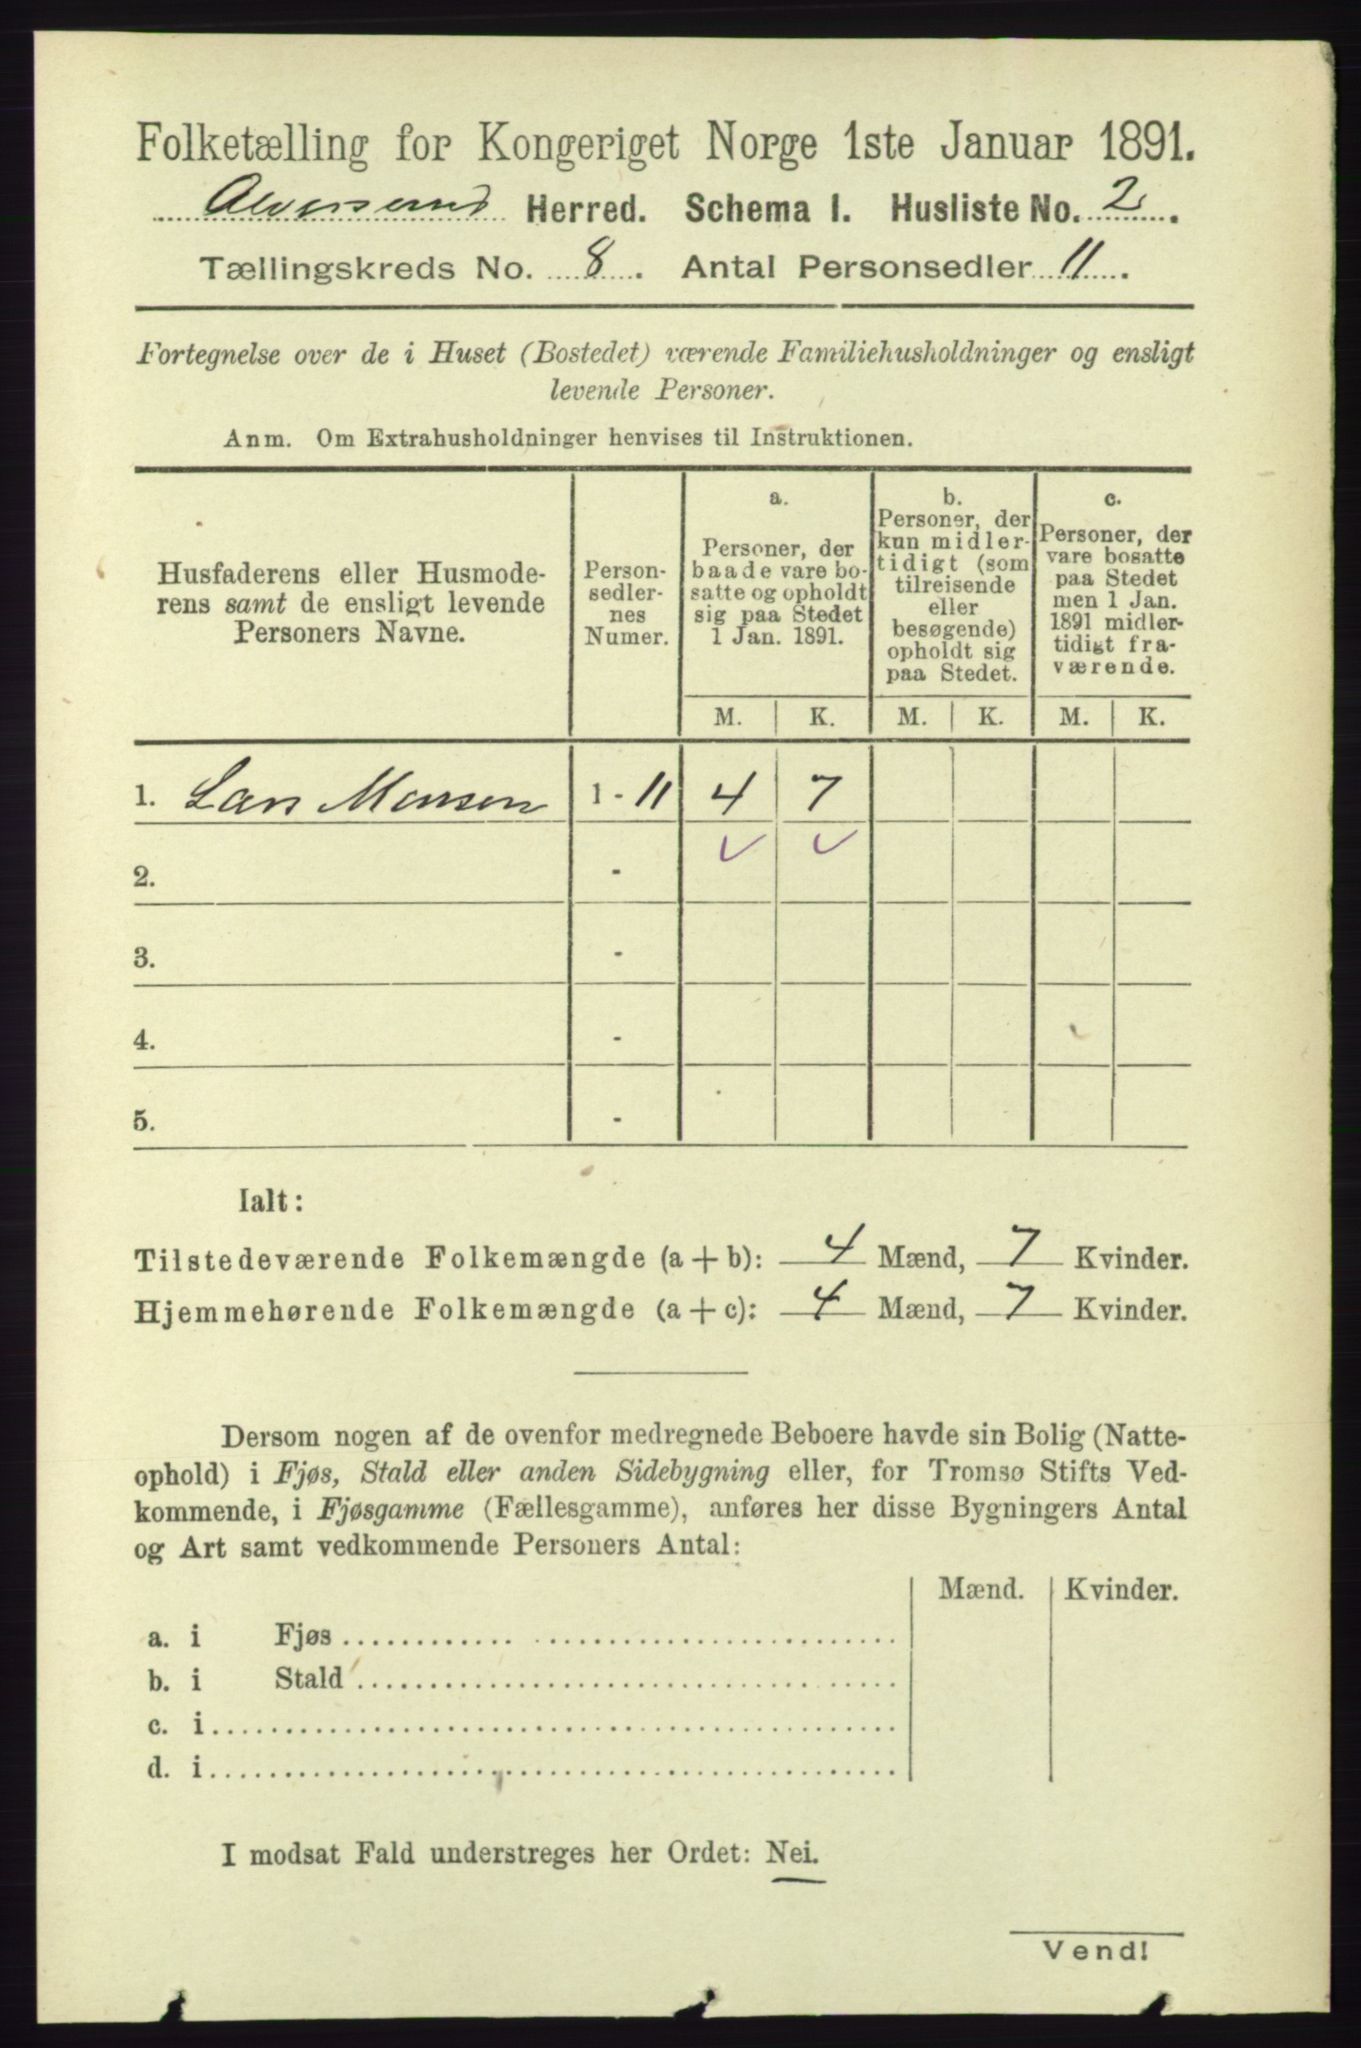 Folketælling for Kongeriget Norge 1ste Januar 1891.
Alversund Herred. Schema I. Husliste No. 2.
Tællingskreds No. 8. Antal Personsedler 11.
Fortegnelse over de i Huset (Bostedet) værende Familiehusholdninger og ensligt
levende Personer.
Anm. Om Extrahusholdninger henvises til Instruktionen.
Husfaderens eller Husmode-
rens samt de ensligt levende
Personers Navne.
Person-
sedler-
nes
Numer.
a.
Personer, der
baade vare bo-
satte og opholdt
sig paa Stedet
1 Jan. 1891.
b.
Personer, der
kun midler-
tidigt (som
tilreisende
eller
besøgende)
opholdt sig
paa Stedet.
c.
Personer, der
vare bosatte
paa Stedet
men 1 Jan.
1891 midler-
tidigt fra-
værende.
M. K. M. K. M. K.
1. Lars Monsen 1 - 11 4 7
2. -
3. -
4. -
5. -
Ialt:
Tilstedeværende Folkemængde (a + b): 4 Mænd, 7 Kvinder.
Hjemmehørende Folkemængde (a + c): 4 Mænd, 7 Kvinder.
Dersom nogen af de ovenfor medregnede Beboere havde sin Bolig (Natte-
ophold) i Fjøs, Stald eller anden Sidebygning eller, for Tromsø Stifts Ved-
kommende, i Fjøsgamme (Fællesgamme), anføres her disse Bygningers Antal
og Art samt vedkommende Personers Antal:
Mænd. Kvinder.
a. i Fjøs
b. i Stald
c. i
d. i
I modsat Fald understreges her Ordet: Nei.
Vend!